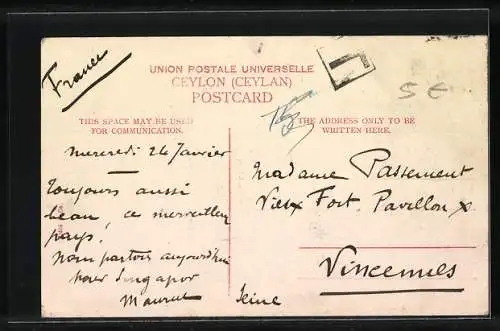 France
UNION POSTALE UNIVERSELLE
CEYLON (CEYLAN)
POSTCARD
5 €
THIS SPACE MAY BE USED
FOR COMMUNICATION.
THE ADDRESS ONLY TO BE
WRITTEN HERE.
Mercredi 24 Janvier
Toujours aussi
beau, ce merveilleux
pays!
Nous partons aujourd'hui
pour Singapor
Madame Passement
Vieux Fort. Pavillon X
Vincennes
Seine